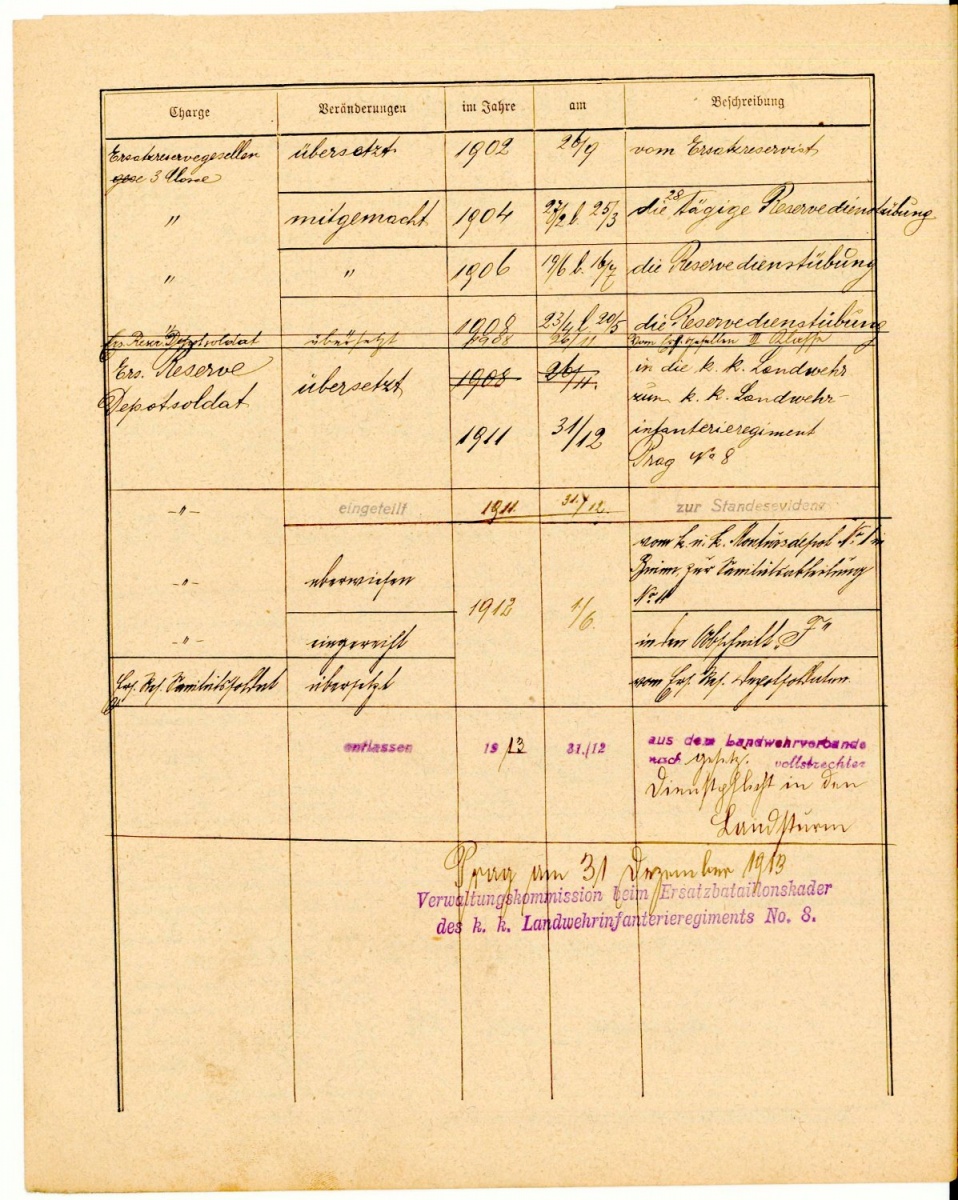 Charge Veränderungen im Jahre am Beschreibung
Ersatzreservegesellen übersetzt 1902 26/9 vom Ersatzreservist
3 Classe
" mitgemacht 1904 27/2 b. 25/3 die 28 tägige Reservedienstübung
" " 1906 19/6 b. 16/7 die Reservedienstübung
" 1908 23/4 b. 20/5 die Reservedienstübung
Ers. Reserv. Depotsoldat übersetzt 1908 26/11 vom Ers. gesellen III Classe
Ers. Reserve übersetzt 1908 26/11 in die k. k. Landwehr
Depotsoldat zum k. k. Landwehr-
1911 31/12 infanterieregiment
Prag No 8
-"- eingeteilt 1911. 31./12. zur Standesevidenz
vom k. u. k. Monturdepot Nr. 1 in
-"- überwiesen 1912 1/6. Brünn zur Sanitätsabteilung
No 11
-"- eingereiht in den Abschnitt „F"
Ers. Res. Sanitätssoldat übersetzt vom Ers. Res. Depotsoldaten
entlassen 1913 31./12 aus dem Landwehrverbande
nach gesetz. vollstreckter
Dienstpflicht in den
Landsturm
Prag am 31 Dezember 1913
Verwaltungskommission beim Ersatzbataillonskader
des k. k. Landwehrinfanterieregiments No. 8.